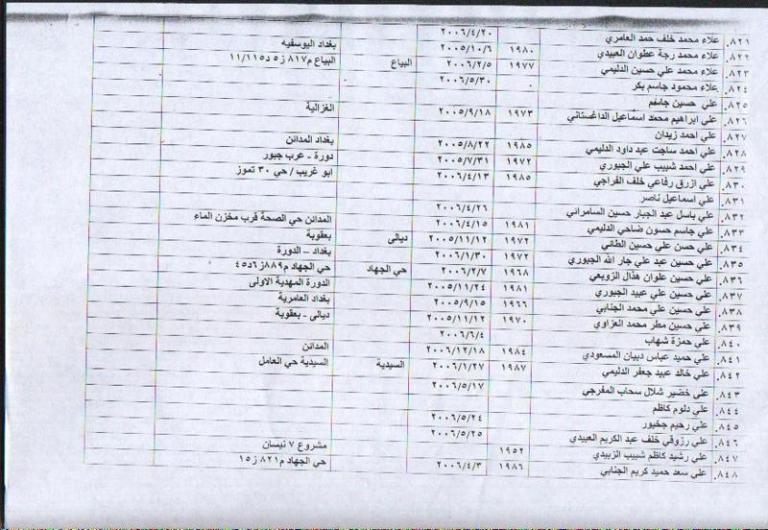 ٨٢١. علاء محمد خلف حمد العامري ٢٠٠٦/٤/٢٠
٨٢٢. علاء محمد رجة عطوان العبيدي ١٩٨٠ ٢٠٠٥/١٠/٦ بغداد اليوسفيه
٨٢٣. علاء محمد علي حسين الدليمي ١٩٧٧ ٢٠٠٦/٢/٥ البياع البياع م٨١٧ ز٥ د١١/١١٥
٨٢٤. علاء محمود جاسم بكر ٢٠٠٦/٥/٣٠
٨٢٥. علي حسين جاسم
٨٢٦. علي ابراهيم محمد اسماعيل الداغستاني ١٩٧٣ ٢٠٠٥/٩/١٨ الغزالية
٨٢٧. علي احمد زيدان
٨٢٨. علي احمد ساجت عبد داود الدليمي ١٩٨٥ ٢٠٠٥/٨/٢٢ بغداد المدائن
٨٢٩. علي احمد شبيب علي الجبوري ١٩٧٢ ٢٠٠٥/٧/٣١ دورة - عرب جبور
٨٣٠. علي ازرق رفاعي خلف الفراجي ١٩٨٥ ٢٠٠٦/٤/١٣ ابو غريب / حي ٣٠ تموز
٨٣١. علي اسماعيل ناصر
٨٣٢. علي باسل عبد الجبار حسين السامرائي ٢٠٠٦/٤/٢٦
٨٣٣. علي جاسم حسون ضاحي الدليمي ١٩٨١ ٢٠٠٦/٤/١٥ المدائن حي الصحة قرب مخزن الماء
٨٣٤. علي حسن علي حسين الطائي ١٩٧٢ ٢٠٠٥/١١/١٢ ديالى بعقوبة
٨٣٥. علي حسين عبد علي جار الله الجبوري ١٩٧٢ ٢٠٠٦/١/٣٠ بغداد – الدورة
٨٣٦. علي حسين علوان هذال الزوبعي ١٩٦٨ ٢٠٠٦/٢/٧ حي الجهاد حي الجهاد م٨٨٩ز٦د٤٥
٨٣٧. علي حسين علي عبيد الجبوري ١٩٨١ ٢٠٠٥/١١/٢٤ الدورة المهدية الاولى
٨٣٨. علي حسين علي محمد الجنابي ١٩٦٦ ٢٠٠٥/٩/١٥ بغداد العامرية
٨٣٩. علي حسين مطر محمد العزاوي ١٩٧٠ ٢٠٠٥/١١/١٢ ديالى - بعقوبة
٨٤٠. علي حمزة شهاب ٢٠٠٦/٦/٤
٨٤١. علي حميد عباس دبيان المسعودي ١٩٨٤ ٢٠٠٦/١٢/١٨ المدائن
٨٤٢. علي خالد عبيد جعفر الدليمي ١٩٨٧ ٢٠٠٦/١/٢٧ السيدية السيدية حي العامل
٨٤٣. علي خضير شلال سحاب المفرجي ٢٠٠٦/٥/١٧
٨٤٤. علي دلوم كاظم
٨٤٥. علي رحيم جخيور ٢٠٠٦/٥/٢٤
٨٤٦. علي رزوقي خلف عبد الكريم العبيدي ٢٠٠٦/٥/٢٥
٨٤٧. علي رشيد كاظم شبيب الزبيدي ١٩٥٢ مشروع ٧ نيسان
٨٤٨. علي سعد حميد كريم الجنابي ١٩٨٦ ٢٠٠٦/٤/٣ حي الجهاد م٨٢١ ز١٥